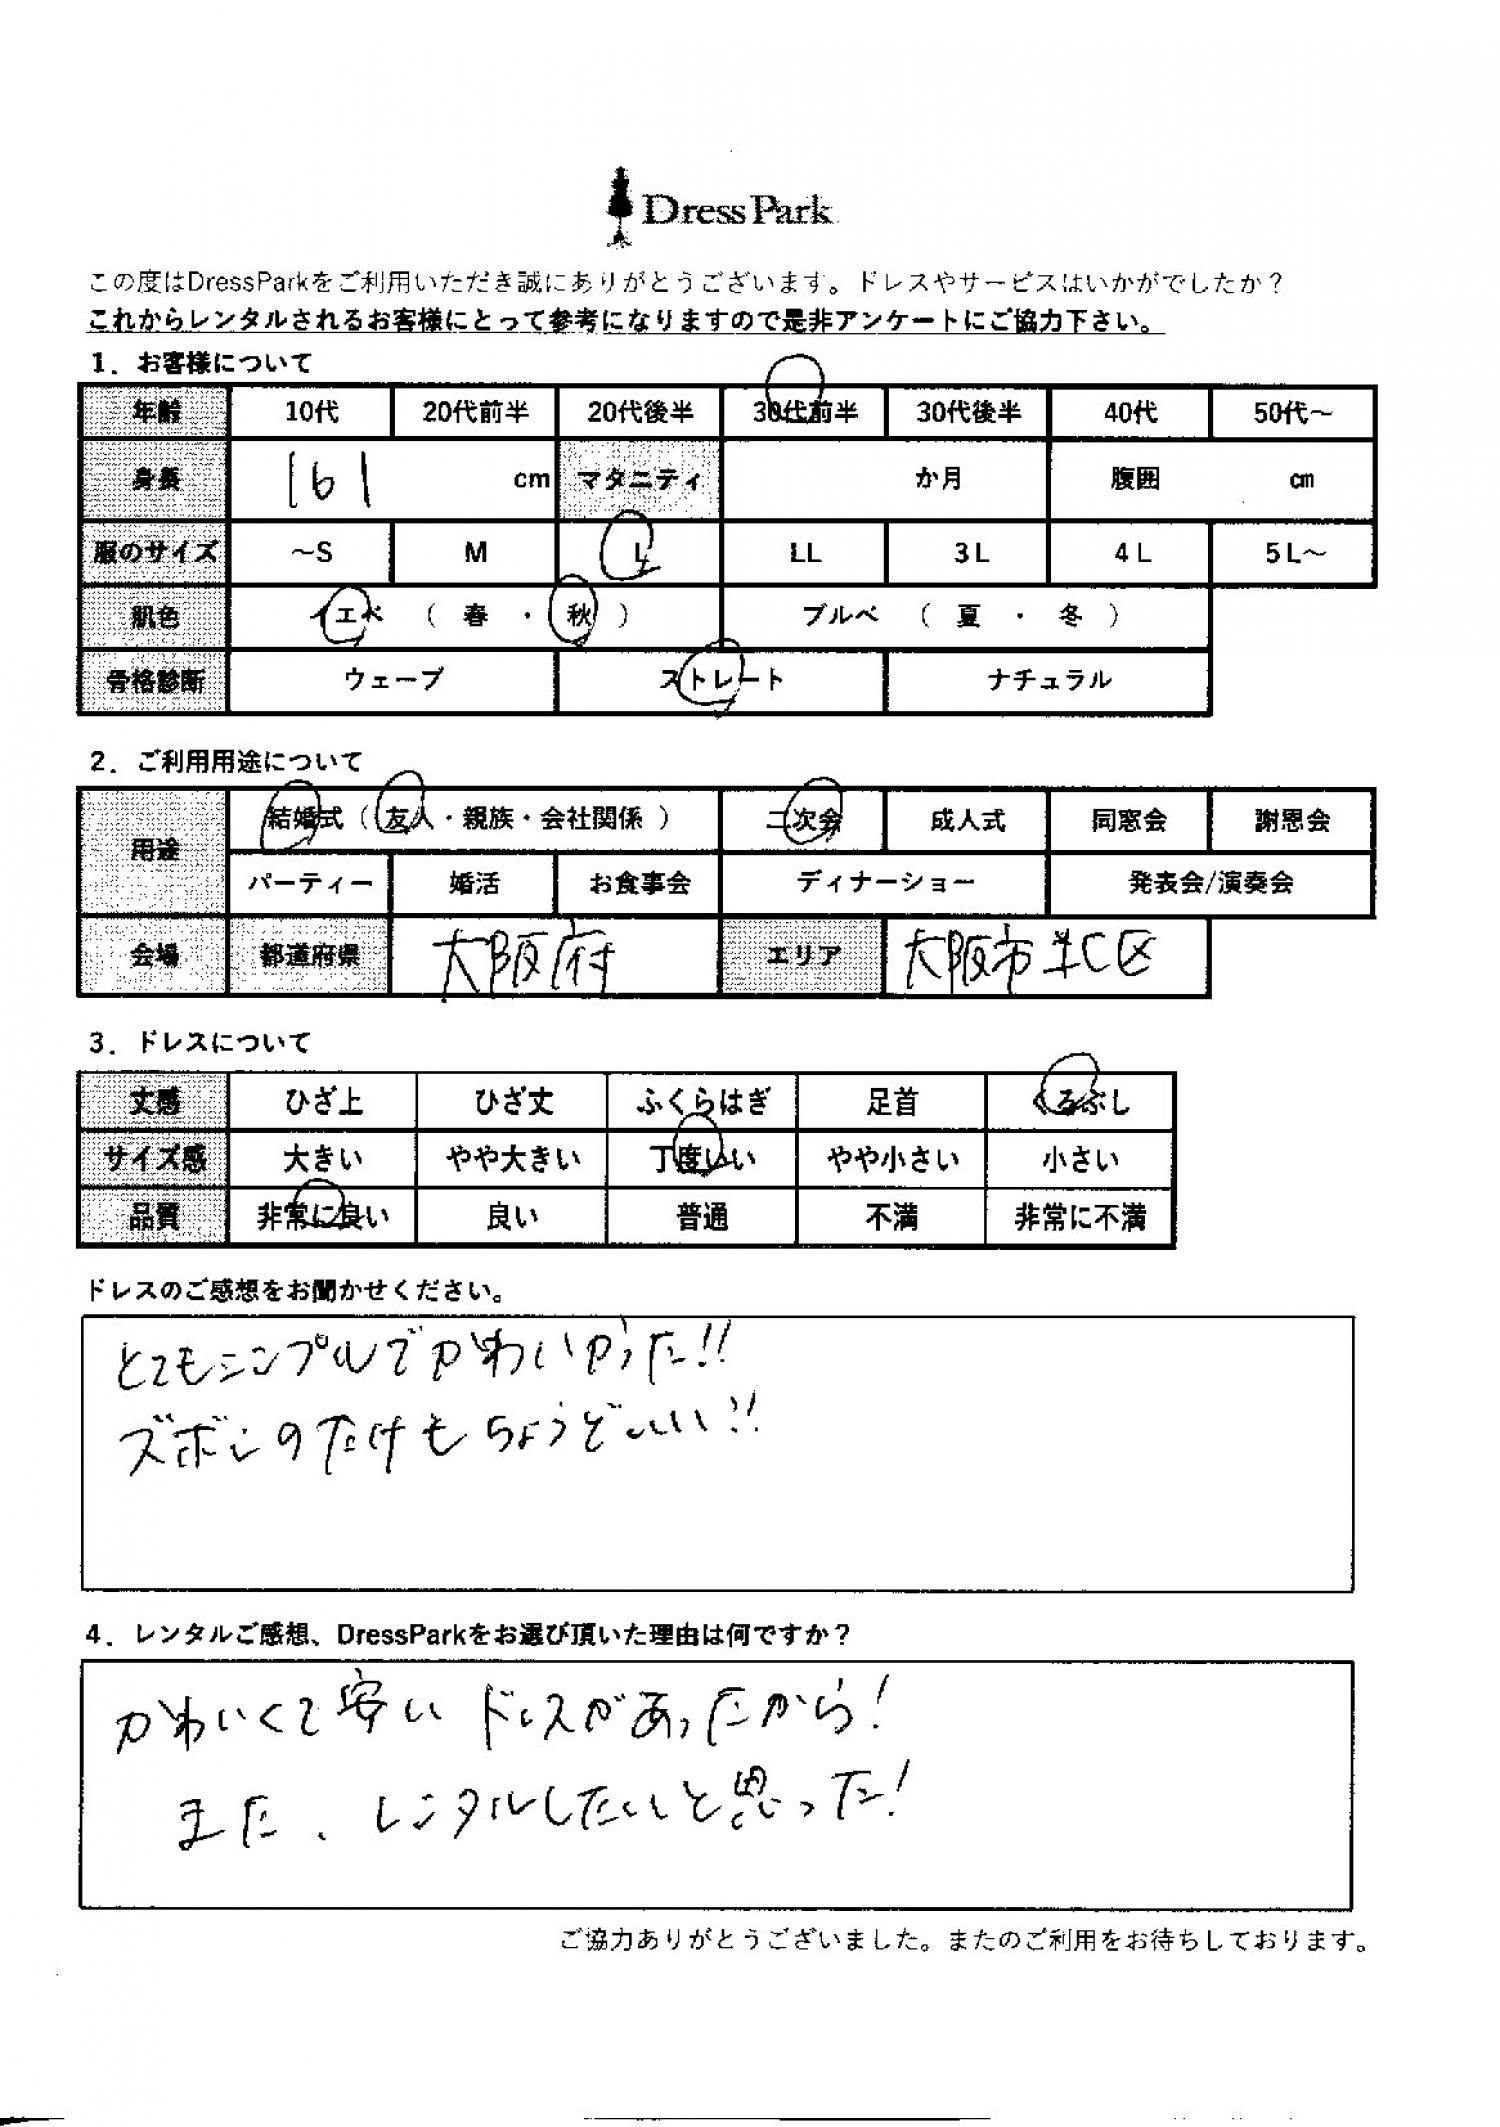 DressPark
この度はDressParkをご利用いただき誠にありがとうございます。ドレスやサービスはいかがでしたか？
これからレンタルされるお客様にとって参考になりますので是非アンケートにご協力下さい。
1．お客様について
年齢 10代 20代前半 20代後半 30代前半 30代後半 40代 50代～
身長 161 cm マタニティ か月 腹囲 cm
服のサイズ ～S M L LL 3L 4L 5L～
肌色 イエベ （ 春 ・ 秋 ） ブルベ （ 夏 ・ 冬 ）
骨格診断 ウェーブ ストレート ナチュラル
2．ご利用用途について
用途 結婚式（ 友人・親族・会社関係 ） 二次会 成人式 同窓会 謝恩会
パーティー 婚活 お食事会 ディナーショー 発表会/演奏会
会場 都道府県 大阪府 エリア 大阪市北区
3．ドレスについて
丈感 ひざ上 ひざ丈 ふくらはぎ 足首 くるぶし
サイズ感 大きい やや大きい 丁度いい やや小さい 小さい
品質 非常に良い 良い 普通 不満 非常に不満
ドレスのご感想をお聞かせください。
とてもシンプルでかわいかった!!
ズボンのたけもちょうどいい!!
4．レンタルご感想、DressParkをお選び頂いた理由は何ですか？
かわいくて安いドレスがあったから!
また、レンタルしたいと思った!
ご協力ありがとうございました。またのご利用をお待ちしております。